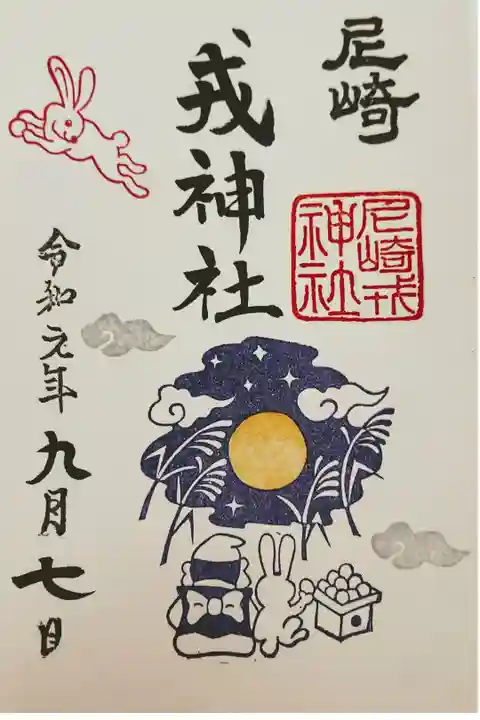 尼崎
戎神社
尼崎戎
神社
令和元年九月七日